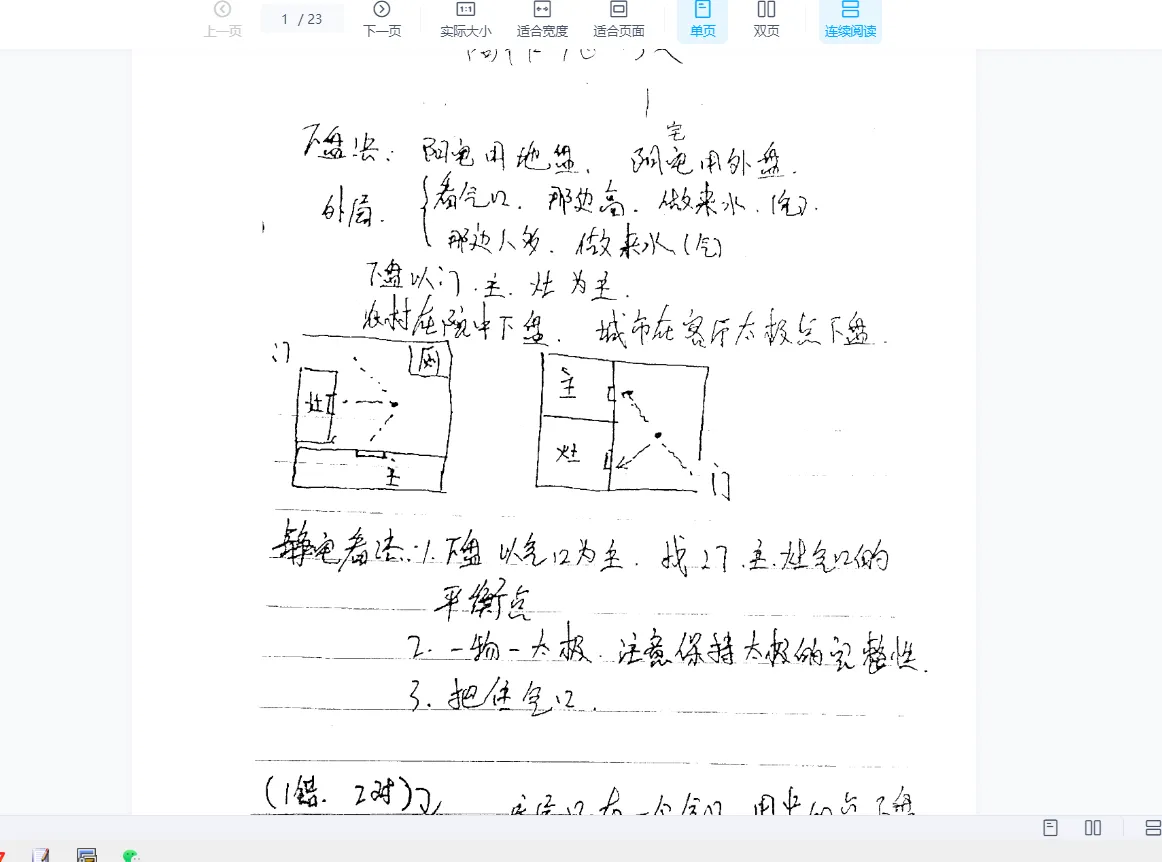 上一页 1 / 23 下一页 实际大小 适合宽度 适合页面 单页 双页 连续阅读
宅
下盘法: 阴宅用地盘、阳宅用外盘.
外局. 看气口、那边高、做来水.(气).
那边人多、做来水(气)
下盘以门.主.灶为主.
农村在院中下盘、城市在客厅太极点下盘.
门 灶 厕 主
主 灶 门
静宅看法:1.下盘以气口为主.找门.主.灶气口的
平衡点
2.一物一太极.注意保持太极的完整性.
3.把住气口.
(1错.2对)